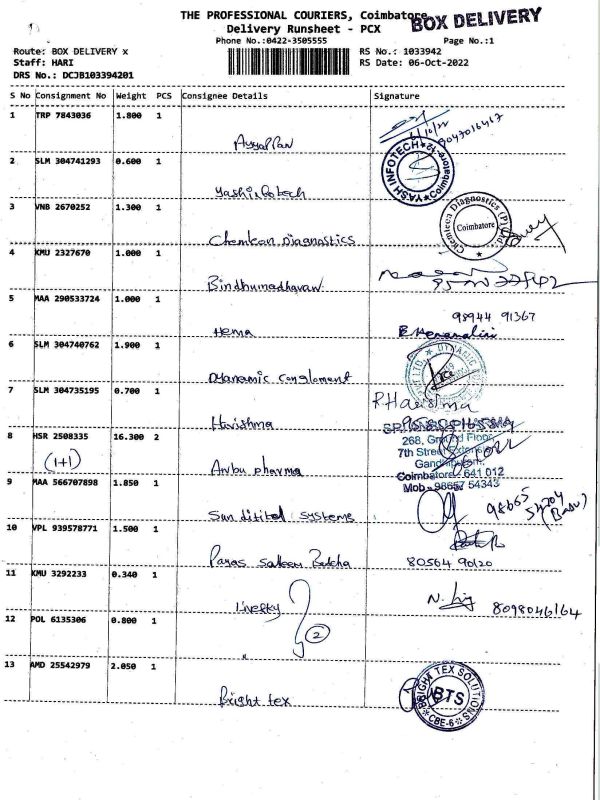 THE PROFESSIONAL COURIERS, Coimbatore
BOX DELIVERY
Delivery Runsheet - PCX
Phone No.:0422-3505555
Page No.:1
Route: BOX DELIVERY x
RS No.: 1033942
Staff: HARI
RS Date: 06-Oct-2022
DRS No.: DCJB103394201
S No Consignment No Weight PCS Consignee Details Signature
1 TRP 7843036 1.800 1
Ayyappan
2 SLM 304741293 0.600 1
YASH INFOTECH Coimbatore-12
Yashinfotech
3 VNB 2670252 1.300 1
Chemteca Diagnostics (P) Ltd.
Coimbatore
Chemkon Diagnostics
4 KMU 2327670 1.000 1
Bindhumadhavan
5 MAA 290533724 1.000 1
98944 91367
Hema
6 SLM 304740762 1.900 1
Dynamic congloment
7 SLM 304735195 0.700 1
P.Harisma
Haristhma
8 HSR 2508335 16.300 2
268, Ground Floor,
7th Street Extension
(1+1)
Anbu pharma
Coimbatore - 641 012
Mob : 98657 54343
9 MAA 566707898 1.850 1
98665 54704
(Basu)
Sun ditital systems
10 VPL 939578771 1.500 1
Paras
80564 90120
11 KMU 3292233 0.340 1
8098046164
Linefty
12 POL 6135306 0.800 1
2
13 AMD 25542979 2.050 1
BRIGHT TEX SOLUTIONS
BTS
CBE-6
Bright tex